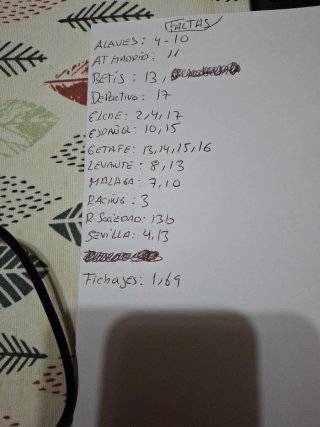 FALTAS
ALAVES: 4-10
AT MADRID: 11
BETIS: 13,
DEPORTIVO: 17
ELCHE: 2,4,17
ESPAÑOL: 10,15
GETAFE: 13,14,15,16
LEVANTE: 8,13
MALAGA: 7,10
RACING: 3
R. SOCIEDAD: 13b
SEVILLA: 4,13
Fichajes: 1,69